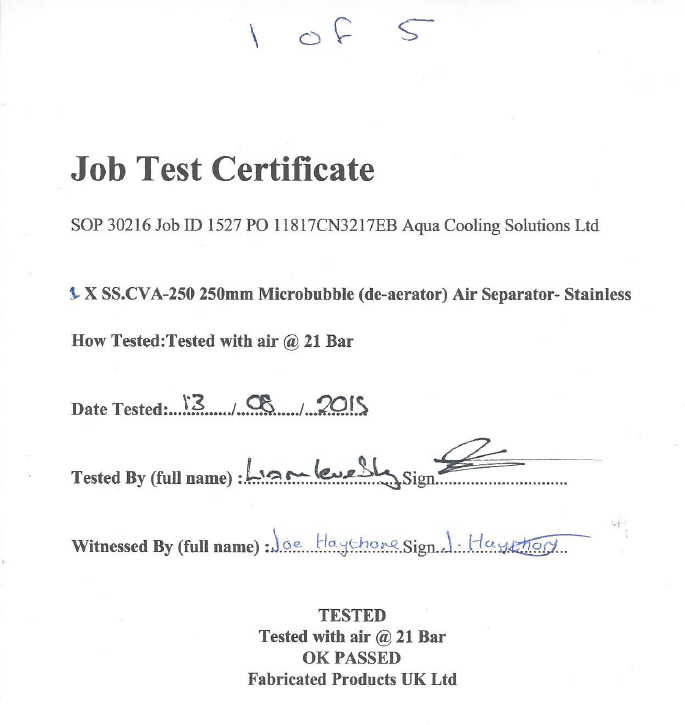 1 of 5
Job Test Certificate
SOP 30216 Job ID 1527 PO 11817CN3217EB Aqua Cooling Solutions Ltd
1 X SS.CVA-250 250mm Microbubble (de-aerator) Air Separator- Stainless
How Tested:Tested with air @ 21 Bar
Date Tested:...13....../..08...../..2015
Tested By (full name) :Liam Sign
Witnessed By (full name) :Joe Haythore Sign J.
TESTED
Tested with air @ 21 Bar
OK PASSED
Fabricated Products UK Ltd